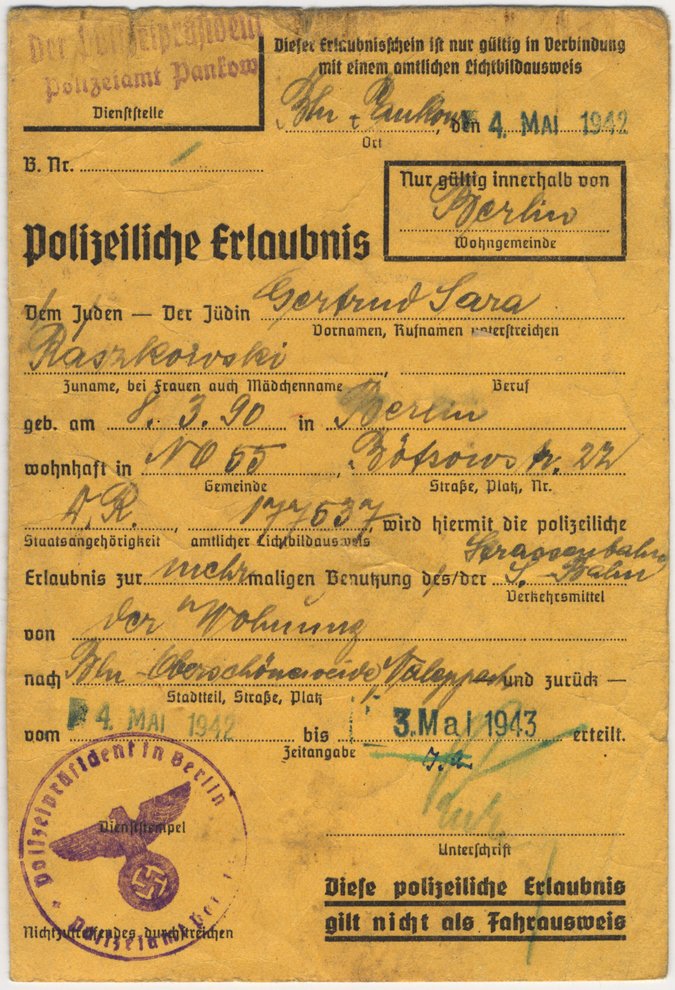 Der Polizeipräsident
Polizeiamt Pankow
Dienststelle
Dieser Erlaubnisschein ist nur gültig in Verbindung
mit einem amtlichen Lichtbildausweis
Bln - Pankow, den 4. MAI 1942
Ort
B. Nr.
Nur gültig innerhalb von
Berlin
Wohngemeinde
Polizeiliche Erlaubnis
Dem Juden — Der Jüdin Gertrud Sara
Vornamen, Rufnamen unterstreichen
Raszkowski,
Zuname, bei Frauen auch Mädchenname Beruf
geb. am 8. 3. 90 in Berlin
wohnhaft in NO 55, Bötzowstr. 22
Gemeinde Straße, Platz, Nr.
D.R., 177537, wird hiermit die polizeiliche
Staatsangehörigkeit amtlicher Lichtbildausweis
Strassenbahn
Erlaubnis zur mehrmaligen Benutzung des/der S-Bahn
Verkehrsmittel
von der Wohnung
nach Bln-Oberschöneweide, und zurück —
Stadtteil, Straße, Platz
vom 4. MAI 1942 bis 3. Mai 1943 erteilt.
Zeitangabe
I.A.
Polizeipräsident in Berlin
Dienststempel
Unterschrift
Diese polizeiliche Erlaubnis
gilt nicht als Fahrausweis
Nichtzutreffendes durchstreichen
Polizeiamt